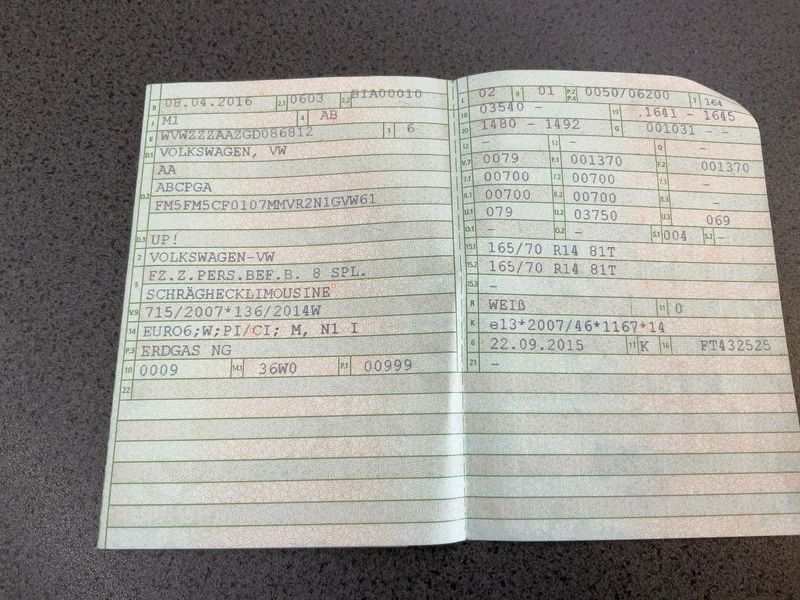 B 08.04.2016 2.1 0603 2.2 BIA00010
J M1 4 AB
E WVWZZZAAZGD086812 3 6
D.1 VOLKSWAGEN, VW
AA
D.2 ABCPGA
FM5FM5CF0107MMVR2N1GVW61
D.3 UP!
2 VOLKSWAGEN-VW
5 FZ.Z.PERS.BEF.B. 8 SPL.
SCHRÄGHECKLIMOUSINE
V.9 715/2007*136/2014W
14 EURO6;W;PI/CI; M, N1 I
P.3 ERDGAS NG
10 0009 14.1 36W0 P.1 00999
22
L 02 9 01 P.2 P.4 0050/06200 T 164
18 03540 - 19 .1641 - 1645
20 1480 - 1492 G 001031 - -
12 - 13 - Q -
V.7 0079 F.1 001370 F.2 001370
7.1 00700 7.2 00700 7.3 -
8.1 00700 8.2 00700 8.3 -
U.1 079 U.2 03750 U.3 069
O.1 - O.2 - S.1 004 S.2 -
15.1 165/70 R14 81T
15.2 165/70 R14 81T
15.3 -
R WEIß 11 0
K e13*2007/46*1167*14
6 22.09.2015 17 K 16 FT432525
21 -